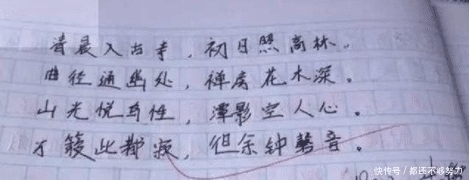 清晨入古寺,初日照高林。
曲径通幽处,禅房花木深。
山光悦鸟性,潭影空人心。
万籁此都寂,但余钟磬音。
快传号/都还不够努力